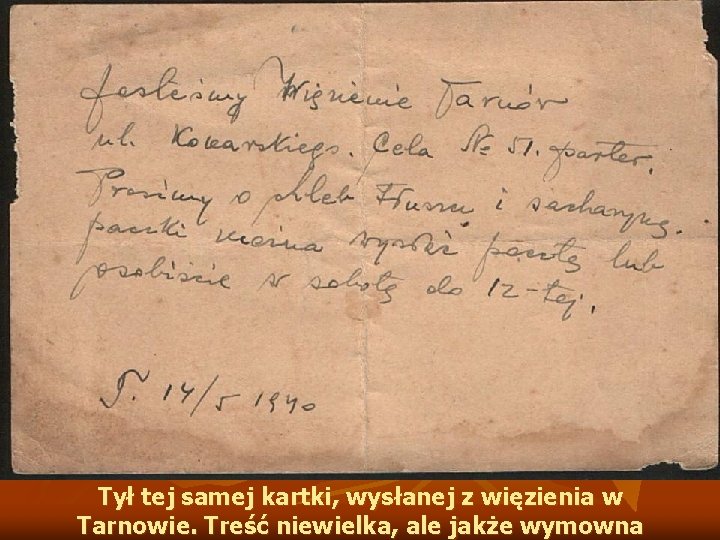 Jesteśmy Więzienie Tarnów
ul. Konarskiego. Cela № 51. parter.
Prosimy o chleb tłuszcz i sacharynę.
paczki można wysłać pocztą lub
osobiście w sobotę do 12-tej.
T. 14/5 1940
Tył tej samej kartki, wysłanej z więzienia w
Tarnowie. Treść niewielka, ale jakże wymowna